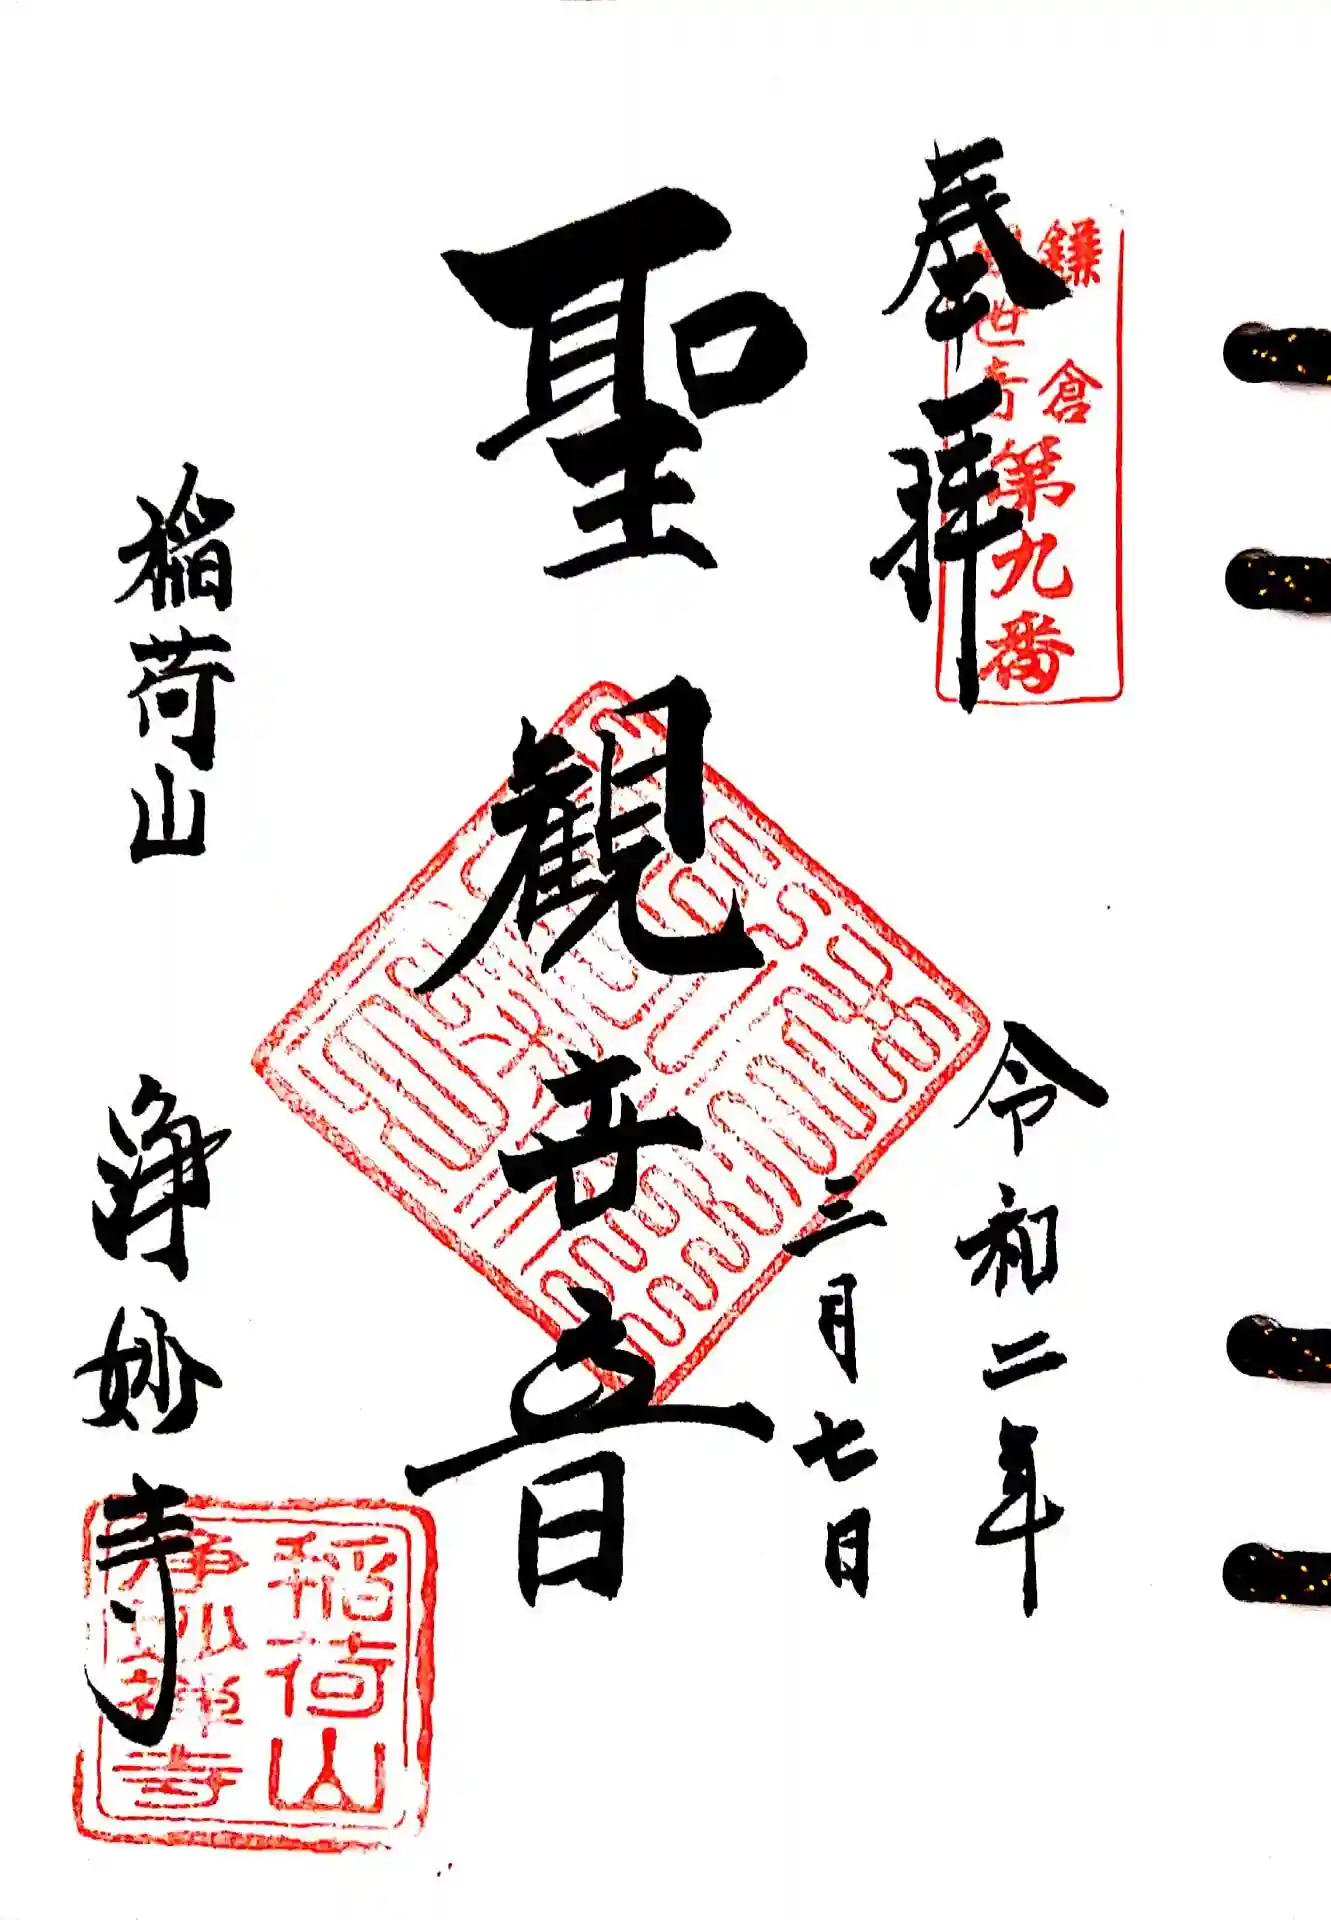 鎌倉
世音第九番
奉拝
令和二年
三月七日
聖観世音
稲荷山 浄妙寺
稲荷山
浄妙禅寺